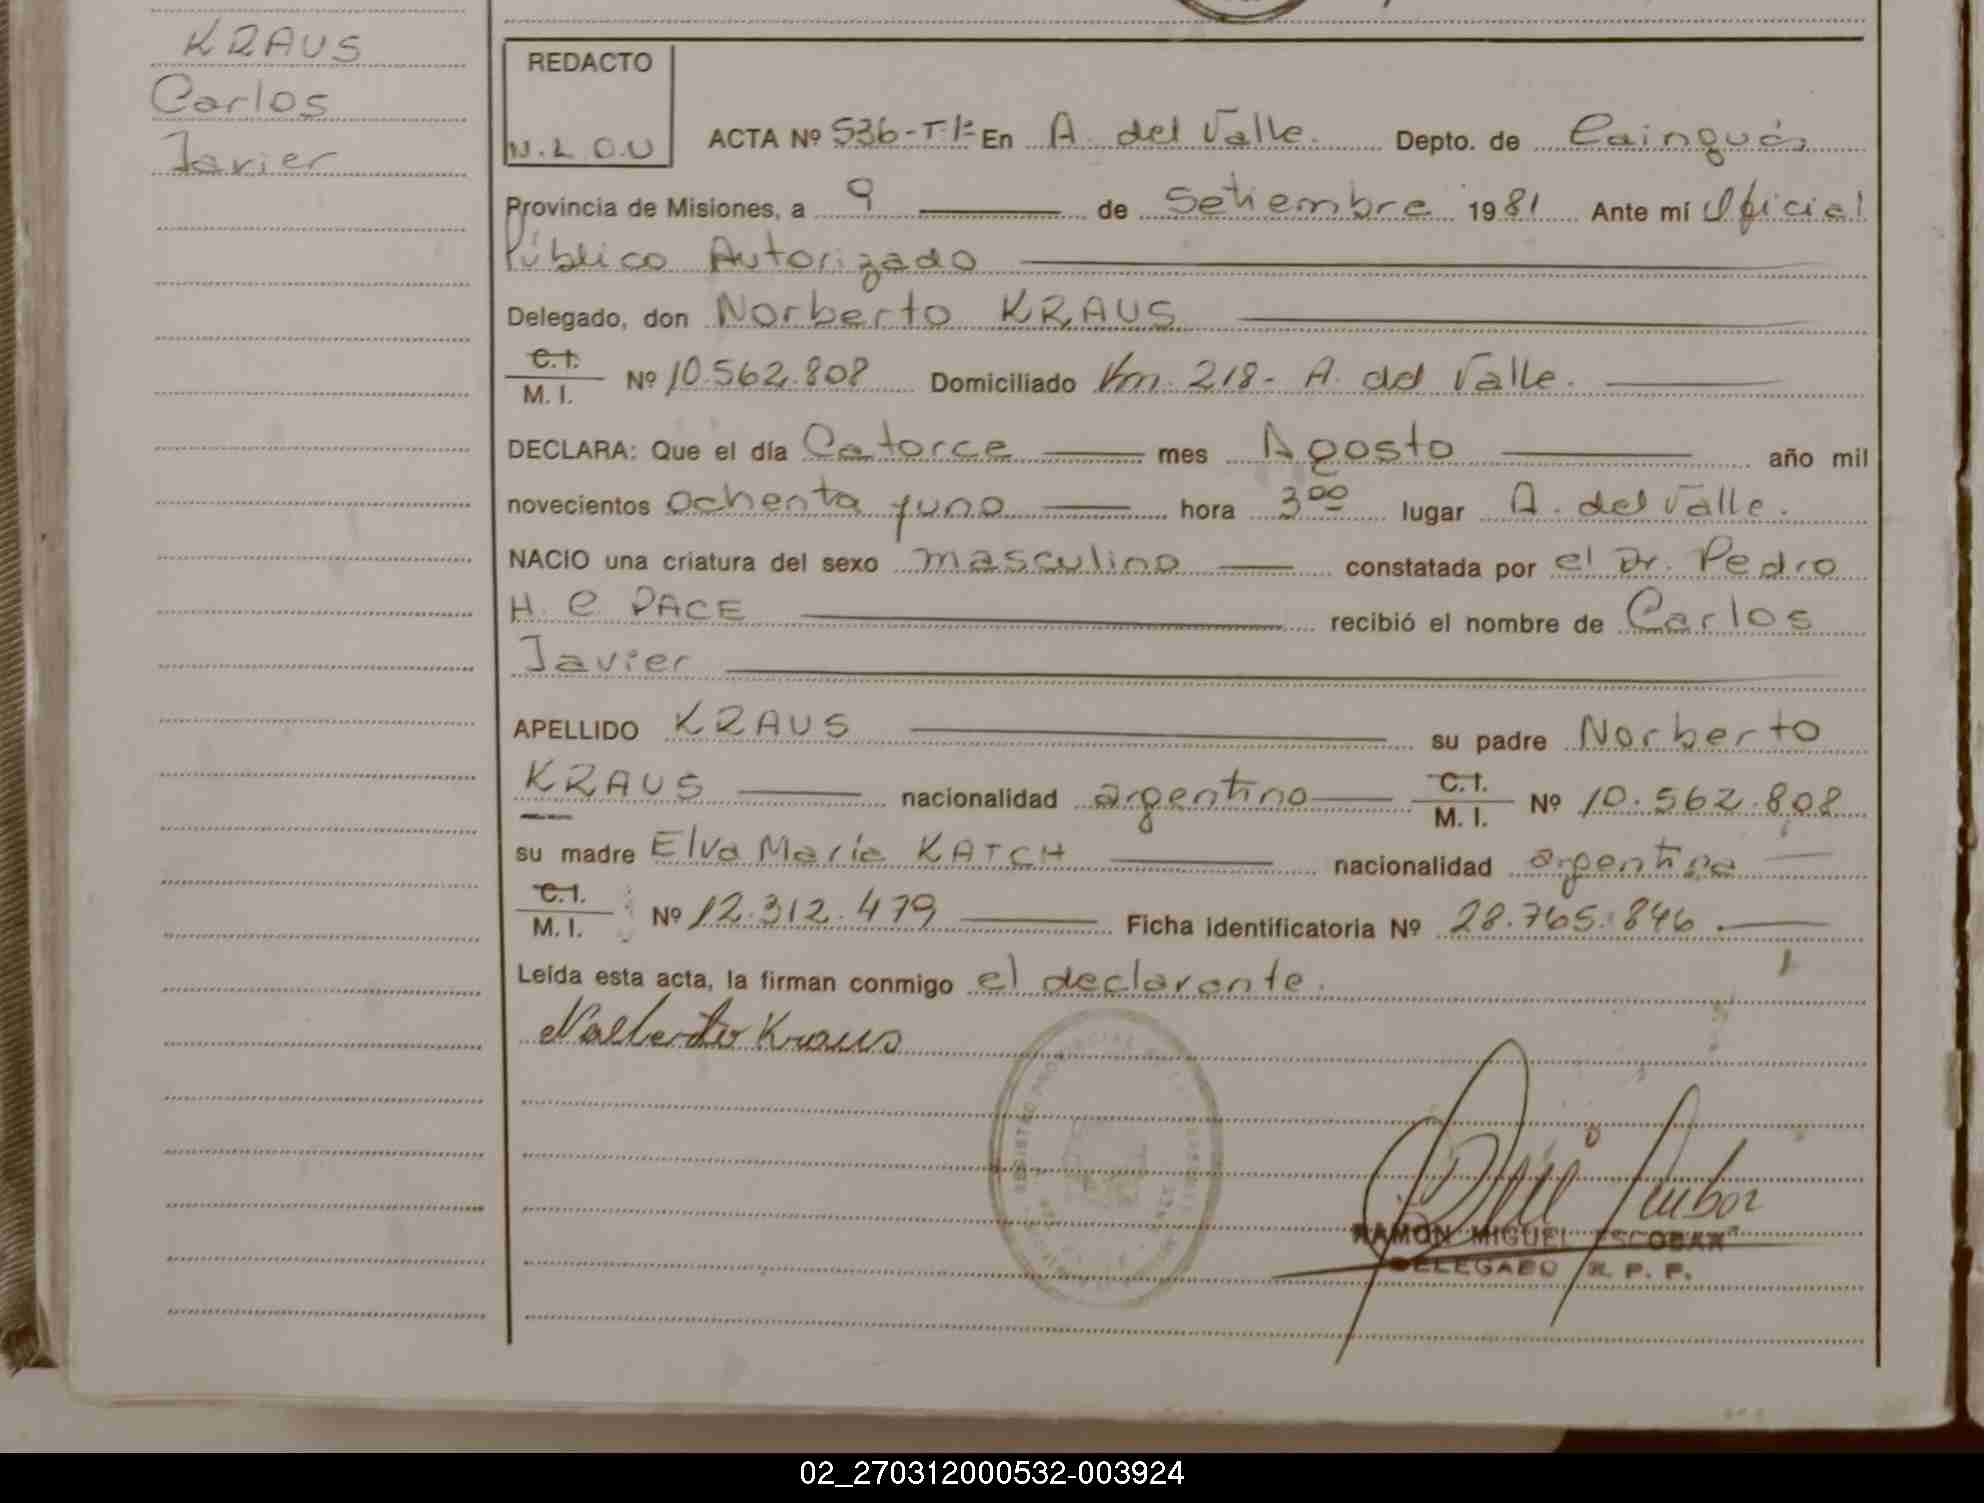 KRAUS
Carlos
Javier
REDACTO
N.L.O.U
ACTA Nº 536-T-1º En A. del Valle. Depto. de Cainguás
Provincia de Misiones, a 9 de Setiembre 1981 Ante mí Oficial
Público Autorizado
Delegado, don Norberto KRAUS
C.I.
M.I. Nº 10.562.808 Domiciliado Km. 218- A. del Valle.
DECLARA: Que el día Catorce mes Agosto año mil
novecientos ochenta y uno hora 3⁰⁰ lugar A. del Valle.
NACIO una criatura del sexo masculino constatada por el Dr. Pedro
H. C. PACE recibió el nombre de Carlos
Javier
APELLIDO KRAUS su padre Norberto
KRAUS nacionalidad argentino C.I. M.I. Nº 10.562.808
su madre Elva María KATCH nacionalidad argentina
C.I.
M.I. Nº 12.312.479 Ficha identificatoria Nº 28.765.846.
Leída esta acta, la firman conmigo el declarante.
Norberto Kraus
RAMON MIGUEL ESCOBAR
DELEGADO R. P. P.
02_270312000532-003924